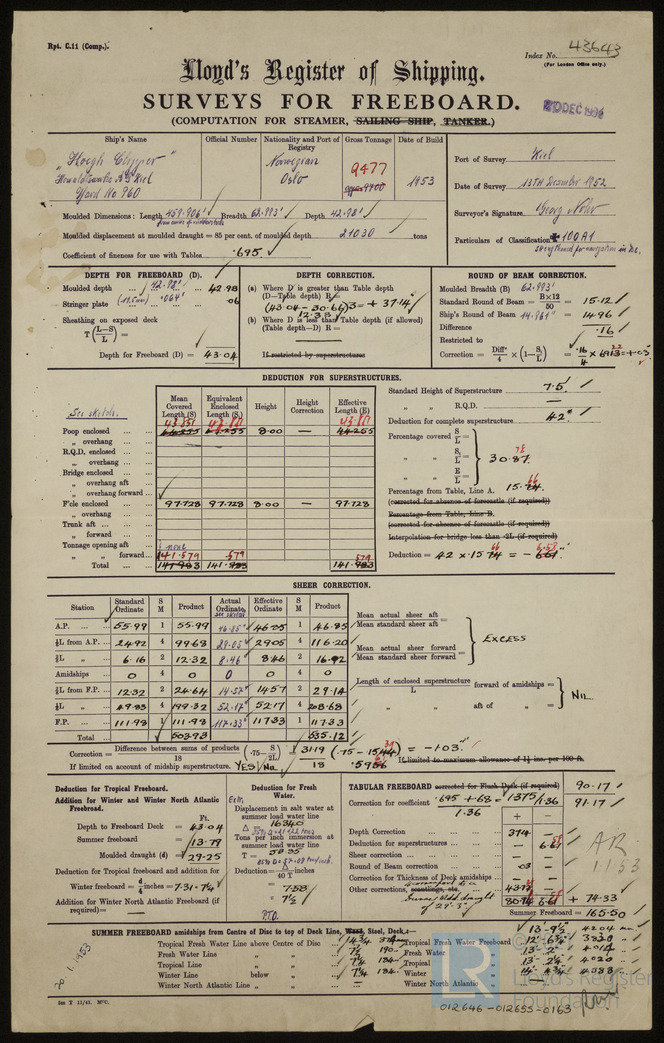 Rpt. C.11 (Comp.).
Index No. 43643
(For London Office only.)
Lloyd's Register of Shipping.
SURVEYS FOR FREEBOARD.
(COMPUTATION FOR STEAMER, SAILING SHIP, TANKER.)
Ship's Name
Official Number
Nationality and Port of Registry
Gross Tonnage
Date of Build
"Hoegh Clipper"
Howaldtswerke A.G. Kiel
Yard No 960
Norwegian
Oslo
9477
1953
Port of Survey Kiel
Date of Survey 13TH December 1952
Surveyor's Signature Georg Nöhr
Particulars of Classification +100A1
strengthened for navigation in ice.
Moulded Dimensions: Length 459.906' Breadth 62.993' Depth 42.98'
Moulded displacement at moulded draught = 85 per cent. of moulded depth 21030 tons
Coefficient of fineness for use with Tables .695
DEPTH FOR FREEBOARD (D).
Moulded depth 42.98' 42.98
Stringer plate .064' .06
Sheathing on exposed deck
T (L-S / L) =
Depth for Freeboard (D) = 43.04
DEPTH CORRECTION.
(a) Where D is greater than Table depth
(D—Table depth) R =
(43.04-30.66)3 = +37.14
12.38
(b) Where D is less than Table depth (if allowed)
(Table depth—D) R =
If restricted by superstructures
ROUND OF BEAM CORRECTION.
Moulded Breadth (B) 62.993'
Standard Round of Beam = B×12 / 50 = 15.12
Ship's Round of Beam 14.961" = 14.96
Difference .16
Restricted to
Correction = Diff. / 4 × (1- S₁ / L) = .16 / 4 × .6913 = +.03
DEDUCTION FOR SUPERSTRUCTURES.
Mean Covered Length (S)
Equivalent Enclosed Length (S₁)
Height
Height Correction
Effective Length (E)
See sketch.
Poop enclosed 44.255 44.255 8.00 — 44.255
„ overhang
R.Q.D. enclosed
„ overhang
Bridge enclosed
„ overhang aft
„ overhang forward
F'cle enclosed 97.728 97.728 8.00 — 97.728
„ overhang
Trunk aft
„ forward
Tonnage opening aft none
„ „ forward 141.579 .579 .579
Total 141.983 141.983 141.983
Standard Height of Superstructure 7.5'
„ „ R.Q.D. —
Deduction for complete superstructure 42"
Percentage covered S / L =
„ „ S₁ / L = 30.87
„ „ E / L =
Percentage from Table, Line A. 15.74
(corrected for absence of forecastle (if required))
Percentage from Table, Line B.
(corrected for absence of forecastle (if required))
Interpolation for bridge less than ·2L (if required)
Deduction = 42 × 15.74 = - 6.61"
SHEER CORRECTION.
Station
Standard Ordinate
S M
Product
Actual Ordinate
Effective Ordinate
S M
Product
A.P. 55.99 1 55.99 46.85" 46.85 1 46.85
⅙L from A.P. 24.92 4 99.68 29.05 29.05 4 116.20
⅓L „ 6.16 2 12.32 8.46 8.46 2 16.92
Amidships 0 4 0 0 0 4 0
⅓L from F.P. 12.32 2 24.64 14.57 14.57 2 29.14
⅙L „ 49.83 4 199.32 52.17 52.17 4 208.68
F.P. 111.98 1 111.98 117.33 117.33 1 117.33
Total 503.93 535.12
Mean actual sheer aft
Mean standard sheer aft =
Mean actual sheer forward
Mean standard sheer forward =
EXCESS
Length of enclosed superstructure forward of amidships =
L
„ „ aft of „ =
NIL
Correction = Difference between sums of products / 18 (·75 - S / 2L) = 31.19 / 18 (.75-.1544) = -1.03"
.5956
If limited on account of midship superstructure. YES, NIL
If limited to maximum allowance of 1½ ins. per 100 ft.
Deduction for Tropical Freeboard.
Addition for Winter and Winter North Atlantic Freeboard.
Ft.
Depth to Freeboard Deck = 43.04
Summer freeboard = 13.79
Moulded draught (d) = 29.25
Deduction for Tropical freeboard and addition for
Winter freeboard = d / 4 inches = 7.31 = 7¼
Addition for Winter North Atlantic Freeboard (if required) = —
Deduction for Fresh Water.
Displacement in salt water at summer load water line
Δ = 16340
Tons per inch immersion at summer load water line
T =
Deduction = Δ / 40 T inches
= 7.58
7½
P.T.O.
TABULAR FREEBOARD corrected for Flush Deck (if required) 90.17
Correction for coefficient .695 + .68 / 1.36 = 1.375 / 1.36 91.17
+ —
Depth Correction 37.14 —
Deduction for superstructures — 6.61
Sheer correction — —
Round of Beam correction .03 —
Correction for Thickness of Deck amidships — —
Other corrections, scantlings, etc.
+ 74.33
Summer Freeboard = 165.50
AR
1.1.53
SUMMER FREEBOARD amidships from Centre of Disc to top of Deck Line, Wood, Steel, Deck:
13-9½ 4204
Tropical Fresh Water Line above Centre of Disc 14¾ 374
Fresh Water Line „ „ 7½ 190
Tropical Line „ „ 7¼ 184
Winter Line below „ 7¼ 184
Winter North Atlantic Line „ „ —
Tropical Fresh Water Freeboard
Fresh Water „ 13-2"
Tropical „ 13-2¼ 4020
Winter „ 14-4¾ 4388
Winter North Atlantic „ —
1.1953
Lloyd's Register
Foundation
LR
012646-012655-0163